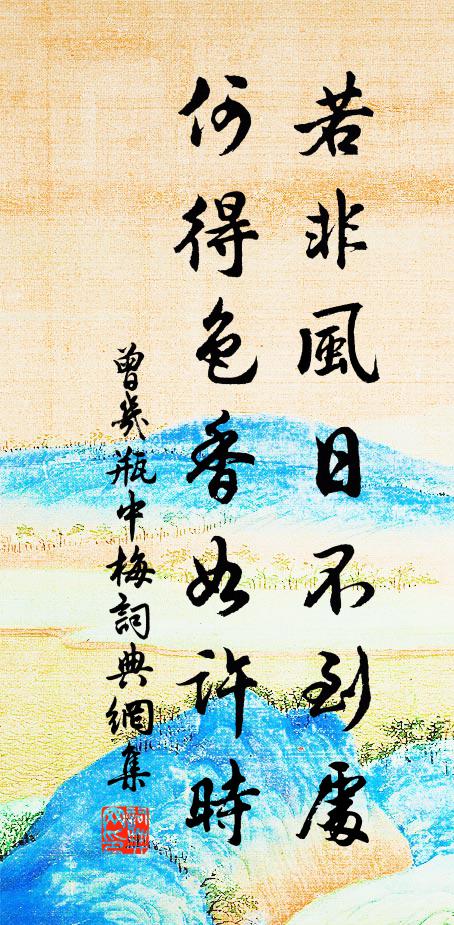 若非風日不到處
何得色香如許時
曾幾瓶中梅詞典網集